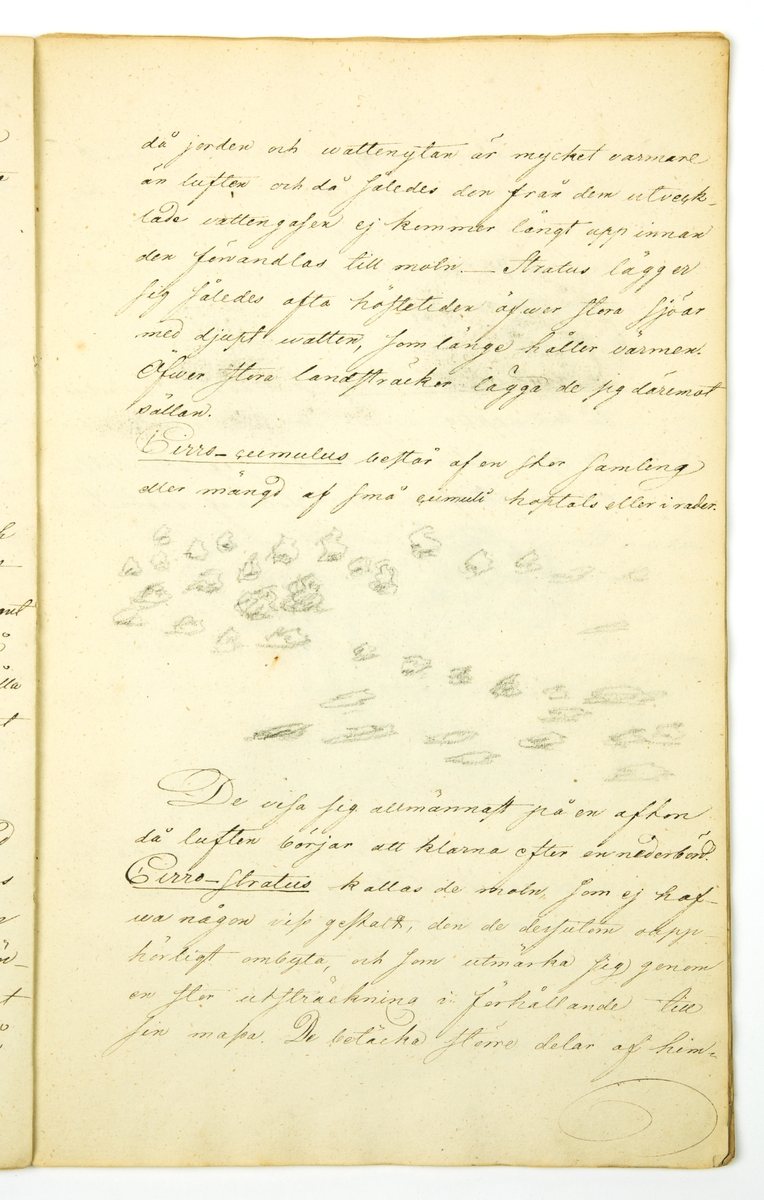 då jorden och wattenytan är mycket varmare
än luften och då således den från dem utveck-
lade vattengasen ej kommer långt upp innan
den förvandlas till moln. — Stratus lägger
sig således ofta hösttiden öfwer stora sjöar
med djupt watten, som länge håller värmen.
Öfwer stora landsträckor lägga de sig däremot
sällan.
Cirro-cumulus består af en stor samling
eller mängd af små cumuli hoptals eller i rader.
De visa sig allmännast på en afton
då luften börjar att klarna efter en nederbörd.
Cirro-stratus kallas de moln, som ej haf-
wa någon viss gestalt, den de dessutom oupp-
hörligt ombyta, och som utmärka sig genom
en stor utsträckning i förhållande till
sin massa. De betäcka större delar af him-